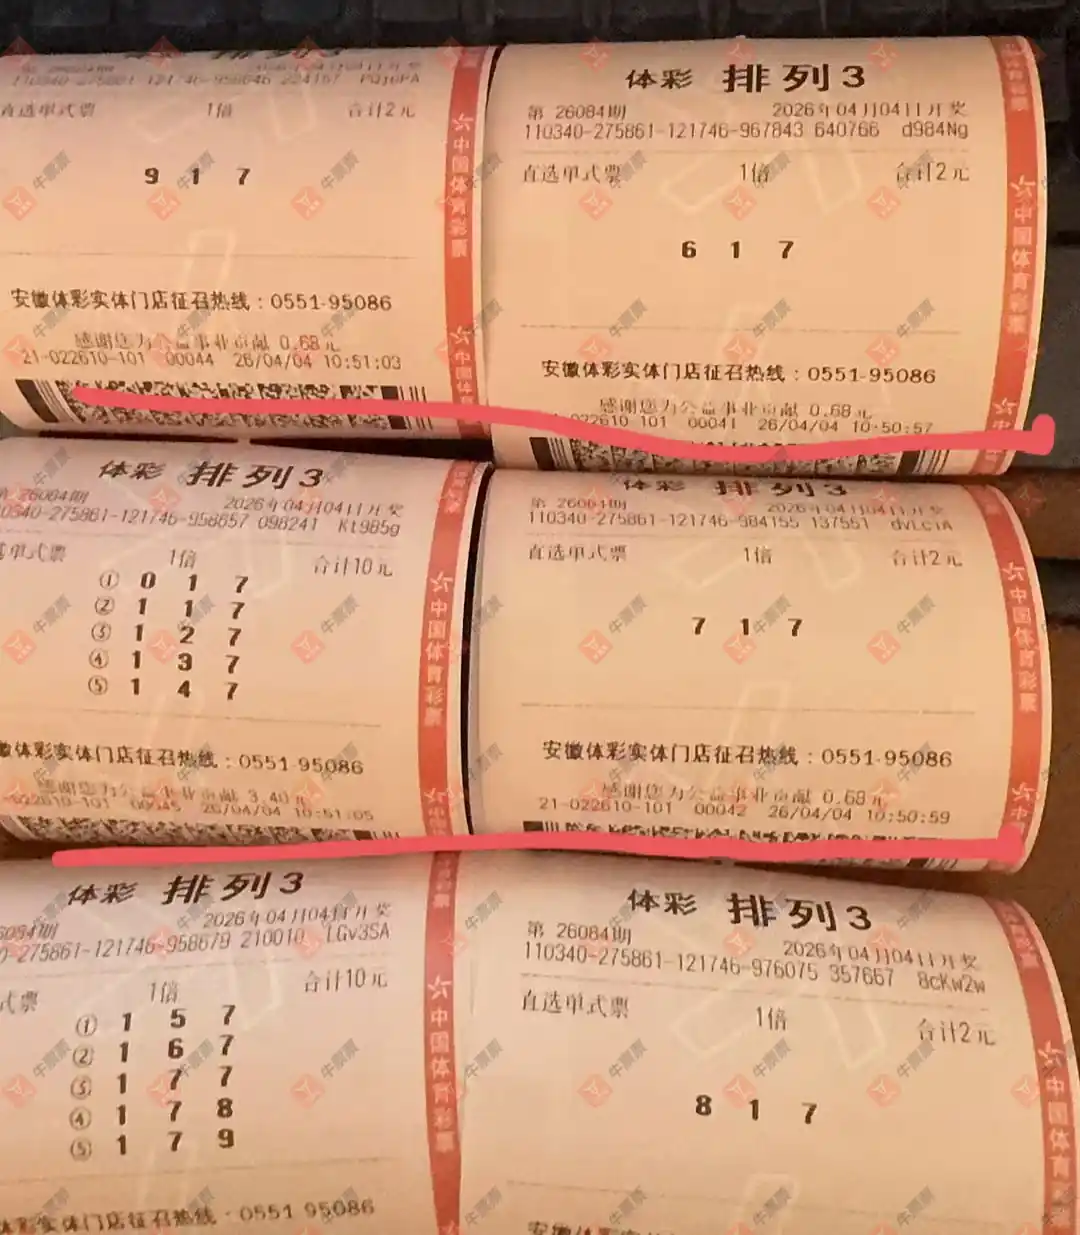 体彩 排列3
110340-275861-121746-958646 224157 PQjuPA
直选单式票 1倍 合计2元
9 1 7
安徽体彩实体门店征召热线：0551-95086
感谢您为公益事业贡献 0.68元
21-022610-101 00044 26/04/04 10:51:03
中国体育彩票
体彩 排列3
第 26084期 2026年04月04日开奖
110340-275861-121746-967843 640766 d984Ng
直选单式票 1倍 合计2元
6 1 7
安徽体彩实体门店征召热线：0551-95086
感谢您为公益事业贡献 0.68元
022610-101 00041 26/04/04 10:50:57
中国体育彩票
体彩 排列3
第 26084期 2026年04月04日开奖
0340-275861-121746-958657 098241 Kt985g
单式票 1倍 合计10元
① 0 1 7
② 1 1 7
③ 1 2 7
④ 1 3 7
⑤ 1 4 7
徽体彩实体门店征召热线：0551-95086
感谢您为公益事业贡献 3.40元
-022610-101 00045 26/04/04 10:51:05
中国体育彩票
体彩 排列3
第 26084期 2026年04月04日开奖
110340-275861-121746-984155 137561
直选单式票 1倍 合计2元
7 1 7
安徽体彩实体门店征召热线：0551-95086
感谢您为公益事业贡献 0.68元
21-022610-101 00042 26/04/04 10:50:59
中国体育彩票
体彩 排列3
6084期 2026年04月04日开奖
0-275861-121746-958679 210010 LGv3SA
式票 1倍 合计10元
① 1 5 7
② 1 6 7
③ 1 7 7
④ 1 7 8
⑤ 1 7 9
体彩实体门店征召热线：0551-95086
中国体育彩票
体彩 排列3
第 26084期 2026年04月04日开奖
110340-275861-121746-976075 357667 8cKw2w
直选单式票 1倍 合计2元
8 1 7
中国体育彩
牛票票